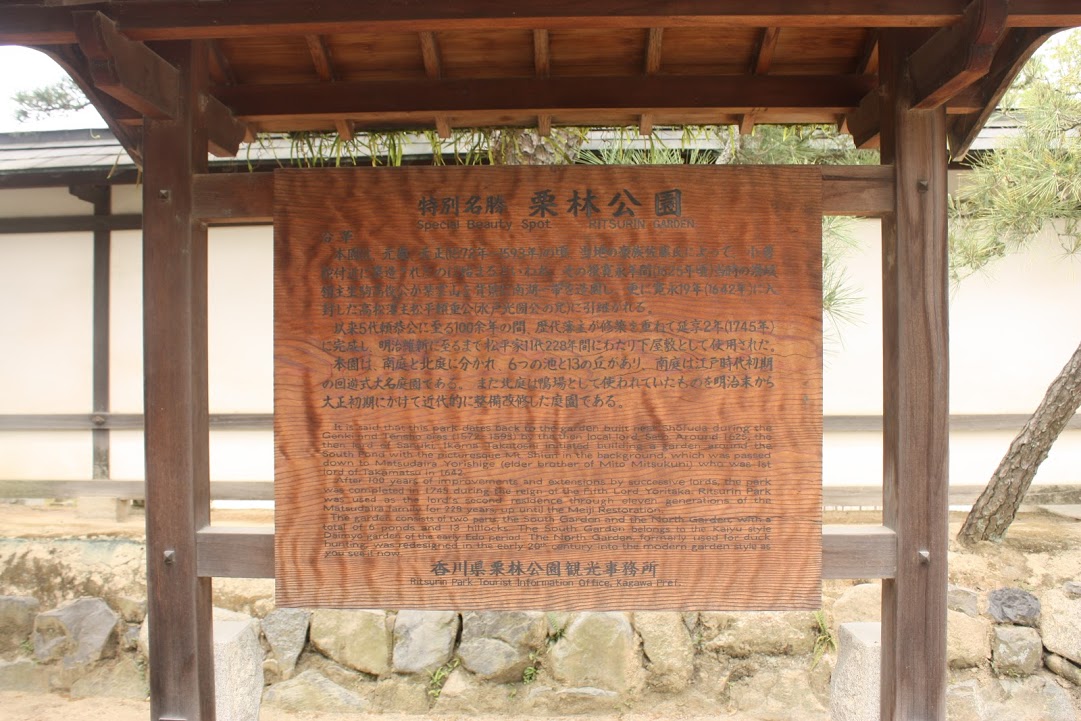 特別名勝 栗林公園
Special Beauty Spot RITSURIN GARDEN
沿革
本園は、元亀、天正(1572年~1593年)の頃、当地の豪族佐藤氏によって、小普
請した高松藩主松平頼重公(水戸光圀公の兄)に引継がれる。
以来5代頼恭公に至る100余年の間、歴代藩主が修築を重ねて延享2年(1745年)
に完成し、明治維新に至るまで松平家11代228年間にわたり下屋敷として使用された。
本園は、南庭と北庭に分かれ、6つの池と13の丘があり、南庭は江戸時代初期
の回遊式大名庭園である。また北庭は鴨場として使われていたものを明治末から
大正初期にかけて近代的に整備改修した庭園である。
It is said that this park dates back to the garden built near Shofuda during the
Genki and Tensho eras (1572-1593) by the then local lord, Sato. Around 1625, the
then lord of Sanuki, Ikoma Takatoshi initiated building a garden around the
South Pond with the picturesque Mt. Shiun in the background, which was passed
down to Matsudaira Yorishige (elder brother of Mito Mitsukuni) who was 1st
lord of Takamatsu in 1642.
After 100 years of improvements and extensions by successive lords, the park
was completed in 1745 during the reign of the fifth Lord Yoritaka. Ritsurin Park
was used as the lord's second residence through eleven generations of the
Matsudaira family for 228 years up until the Meiji Restoration.
The garden consists of two parts, the South Garden and the North Garden, with a
total of 6 ponds and 13 hillocks. The South Garden belongs to the Kaiyu style
Daimyo garden of the early Edo period. The North Garden, formerly used for duck
hunting, was redesigned in the early 20th century into the modern garden style as
you see it now.
香川県栗林公園観光事務所
Ritsurin Park Tourist Information Office, Kagawa Pref.